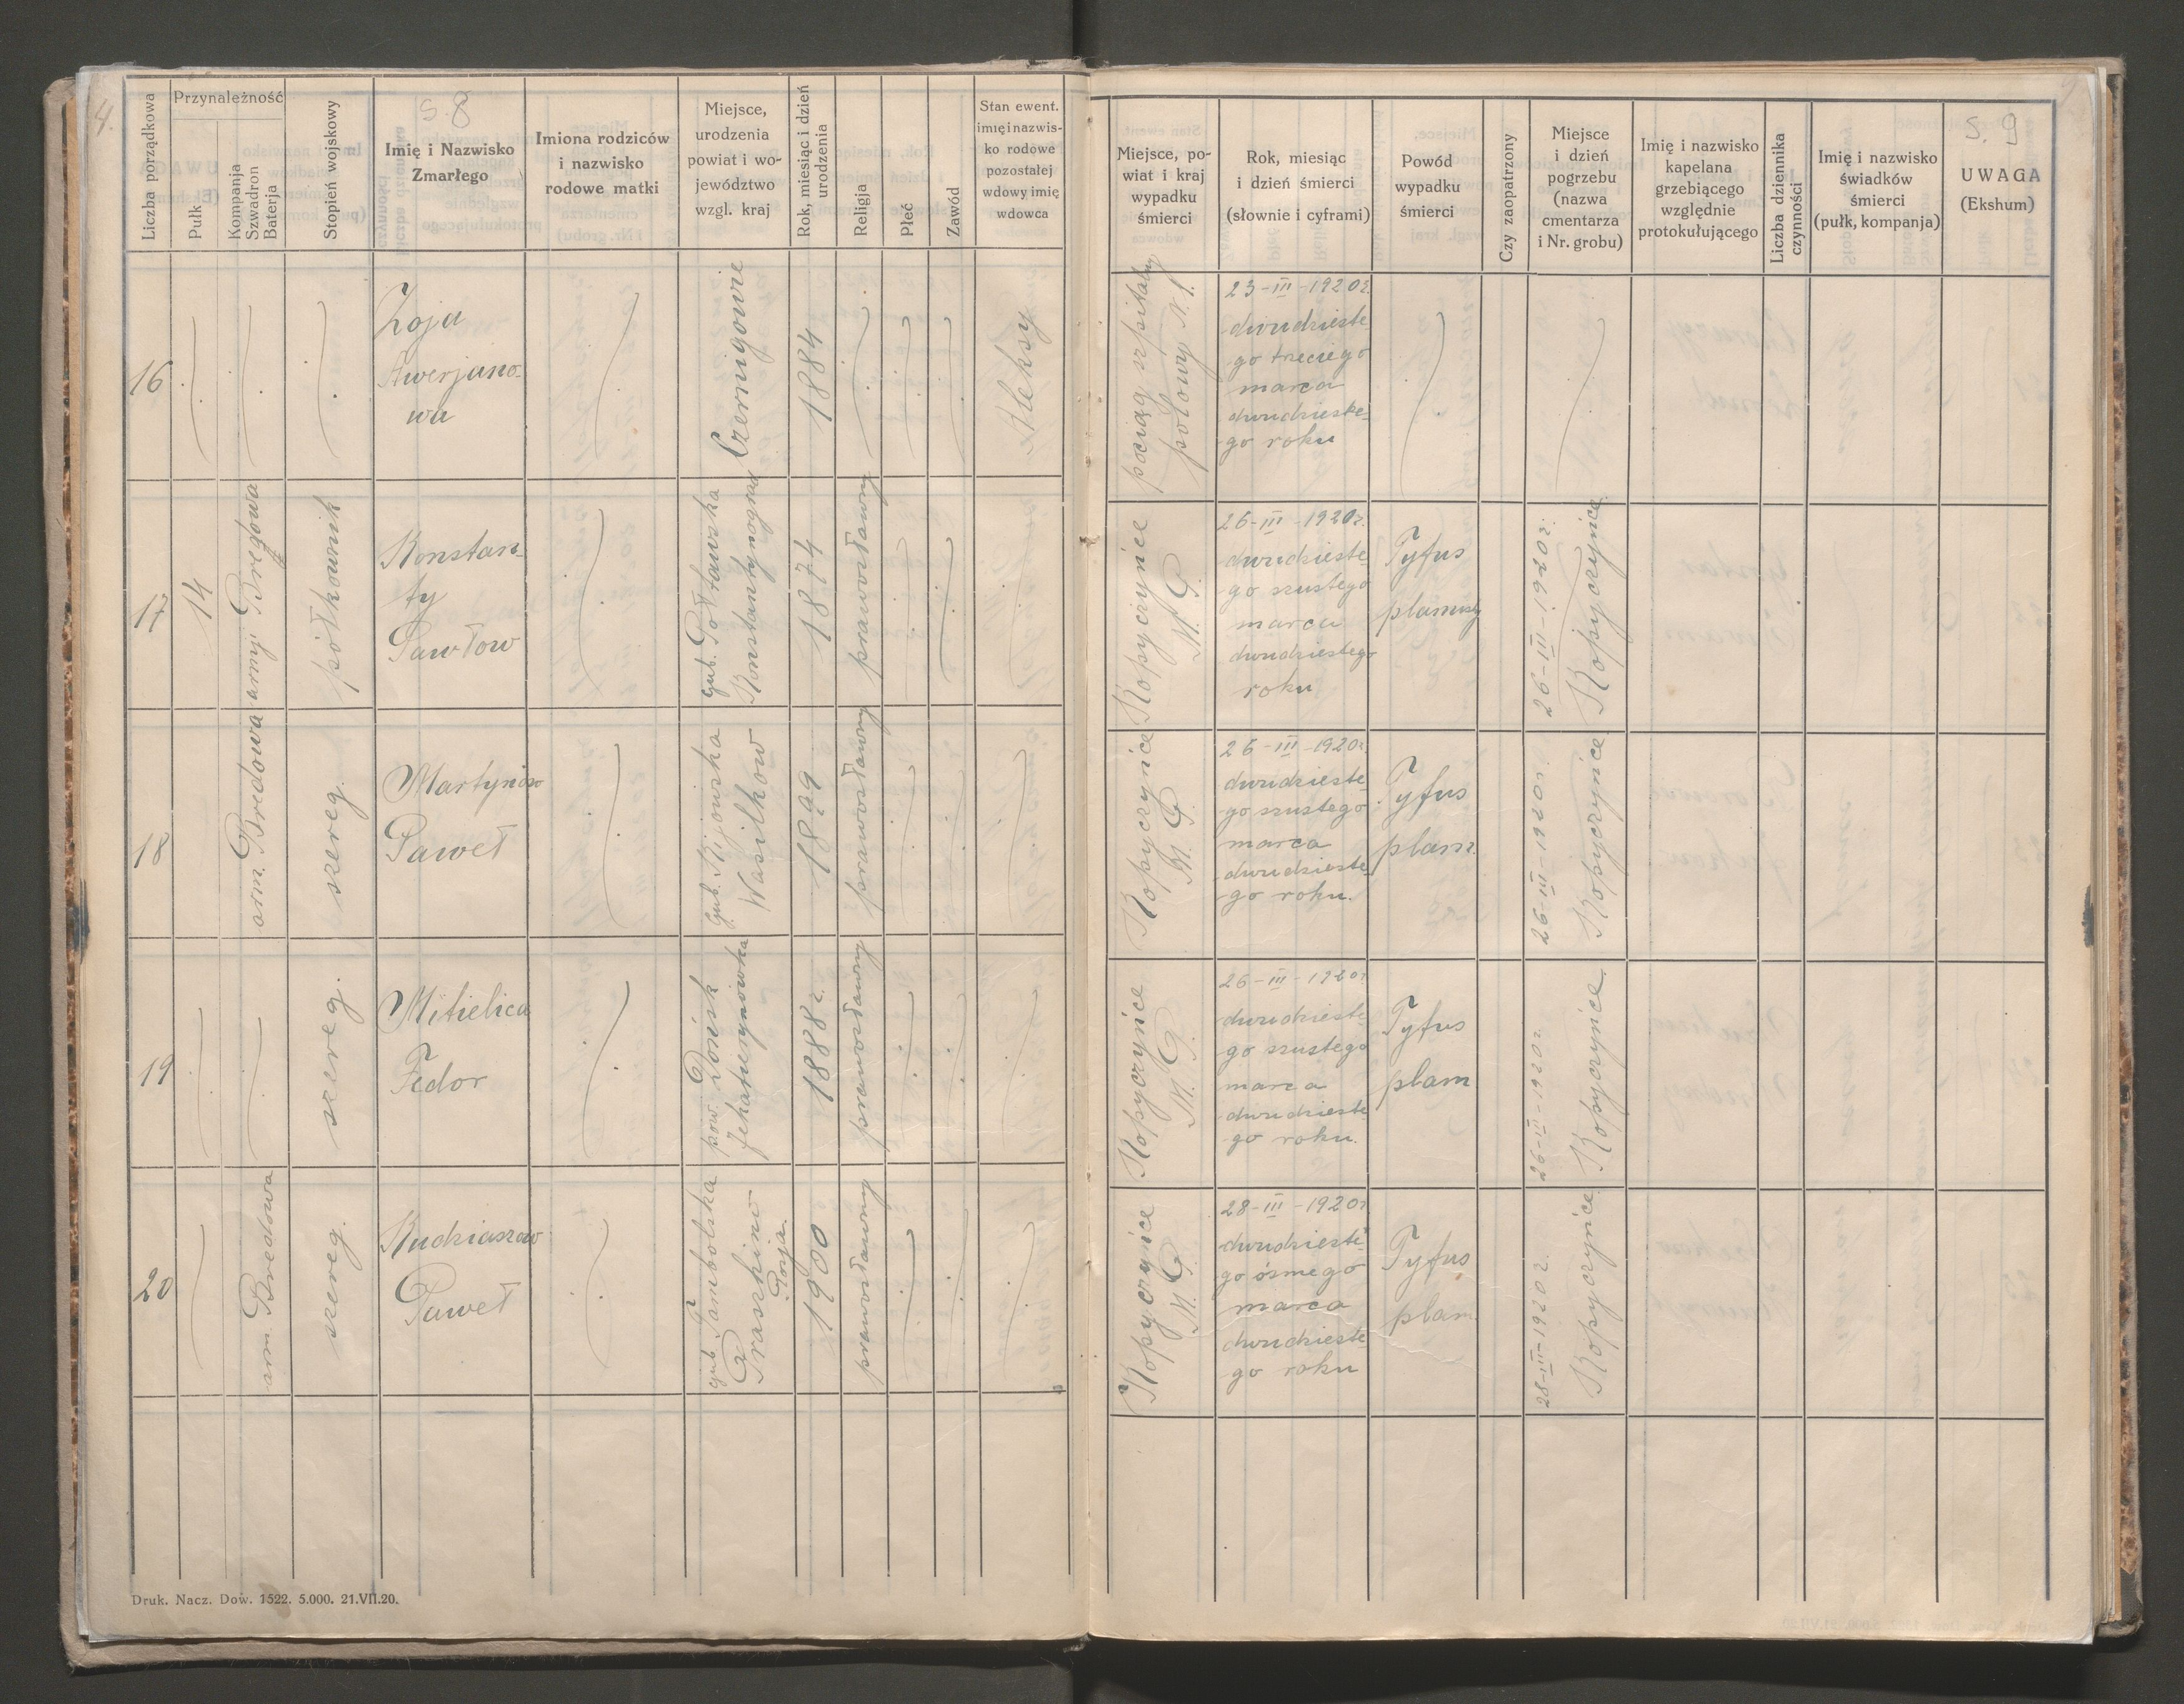 4.
s. 8
Liczba porządkowa
Przynależność
Pułk
Kompanja
Szwadron
Baterja
Stopień wojskowy
Imię i Nazwisko
Zmarłego
Imiona rodziców
i nazwisko
rodowe matki
Miejsce,
urodzenia
powiat i wo-
jewództwo
wzgl. kraj
Rok, miesiąc i dzień
urodzenia
Religja
Płeć
Zawód
Stan ewent.
imię i nazwis-
ko rodowe
pozostałej
wdowy imię
wdowca
16
Zoja
Awerjano-
wa
Czernigowie
1884
Aleksy
17
14
armji Bregowa
półkownik
Konstan-
ty
Pawłow
gub. Połtawska
Konstantynograd
1874
prawosławny
18
arm. Bredowa
szereg.
Martynow
Paweł
Gub. Kijowska
Wasilkow
1899
prawosławny
19
szereg.
Mitielica
Fedor
pow. Dońsk
Jekaterynówka
1888 r.
prawosławny
20
arm. Bredowa
szereg.
Kudriaszow
Paweł
gub. Tambolska
Praszkino
Rosja
1900
prawosławny
Druk. Nacz. Dow. 1522. 5.000. 21.VII.20.
s. 9
Miejsce, po-
wiat i kraj
wypadku
śmierci
Rok, miesiąc
i dzień śmierci
(słownie i cyframi)
Powód
wypadku
śmierci
Czy zaopatrzony
Miejsce
i dzień
pogrzebu
(nazwa
cmentarza
i Nr. grobu)
Imię i nazwisko
kapelana
grzebiącego
względnie
protokułującego
Liczba dziennika
czynności
Imię i nazwisko
świadków
śmierci
(pułk, kompanja)
UWAGA
(Ekshum)
pociąg szpitalny
polowy N. 1.
23-III-1920r.
dwudzieste-
go treciego
marca
dwudzieste-
go roku
Kopyczyńce
M. G.
26-III-1920r.
dwudzieste-
go szustego
marca
dwudziestego
roku
Tyfus
plamisty
26-III-1920r.
Kopyczyńce
Kopyczyńce
M. G.
26-III-1920r.
dwudzieste-
go szustego
marca
dwudzieste-
go roku.
Tyfus
plam.
26-III-1920r.
Kopyczyńce
Kopyczyńce
M. G.
26-III-1920r
dwudzieste-
go szustego
marca
dwudzieste-
go roku.
Tyfus
plam
26-III-1920r.
Kopyczyńce
Kopyczyńce
M. G.
28-III-1920r
dwudzieste-
go ósmego
marca
dwudzieste-
go roku
Tyfus
plam.
28-III-1920r.
Kopyczyńce